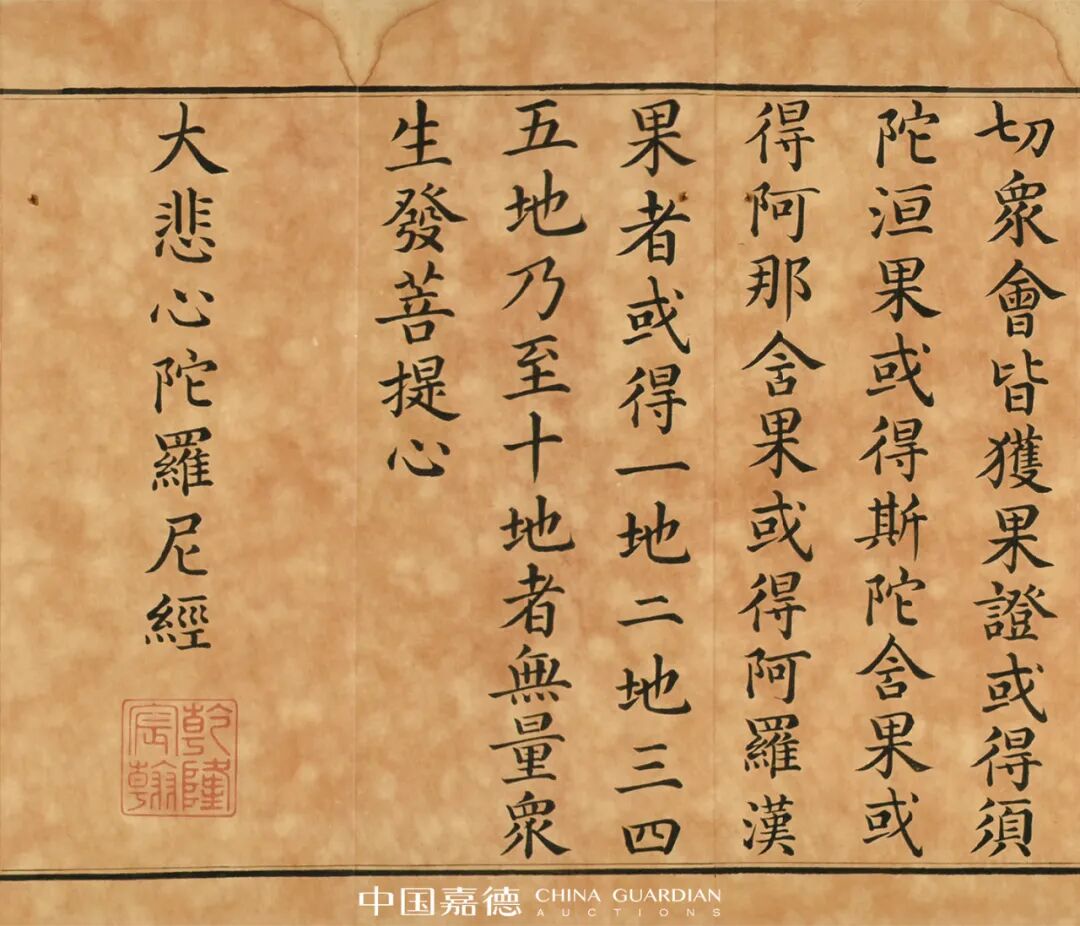 切衆會皆獲果證或得須
陀洹果或得斯陀舍果或
得阿那舍果或得阿羅漢
果者或得一地二地三四
五地乃至十地者無量衆
生發菩提心
大悲心陀羅尼經
乾隆
宸翰
中国嘉德 CHINA GUARDIAN
AUCTIONS